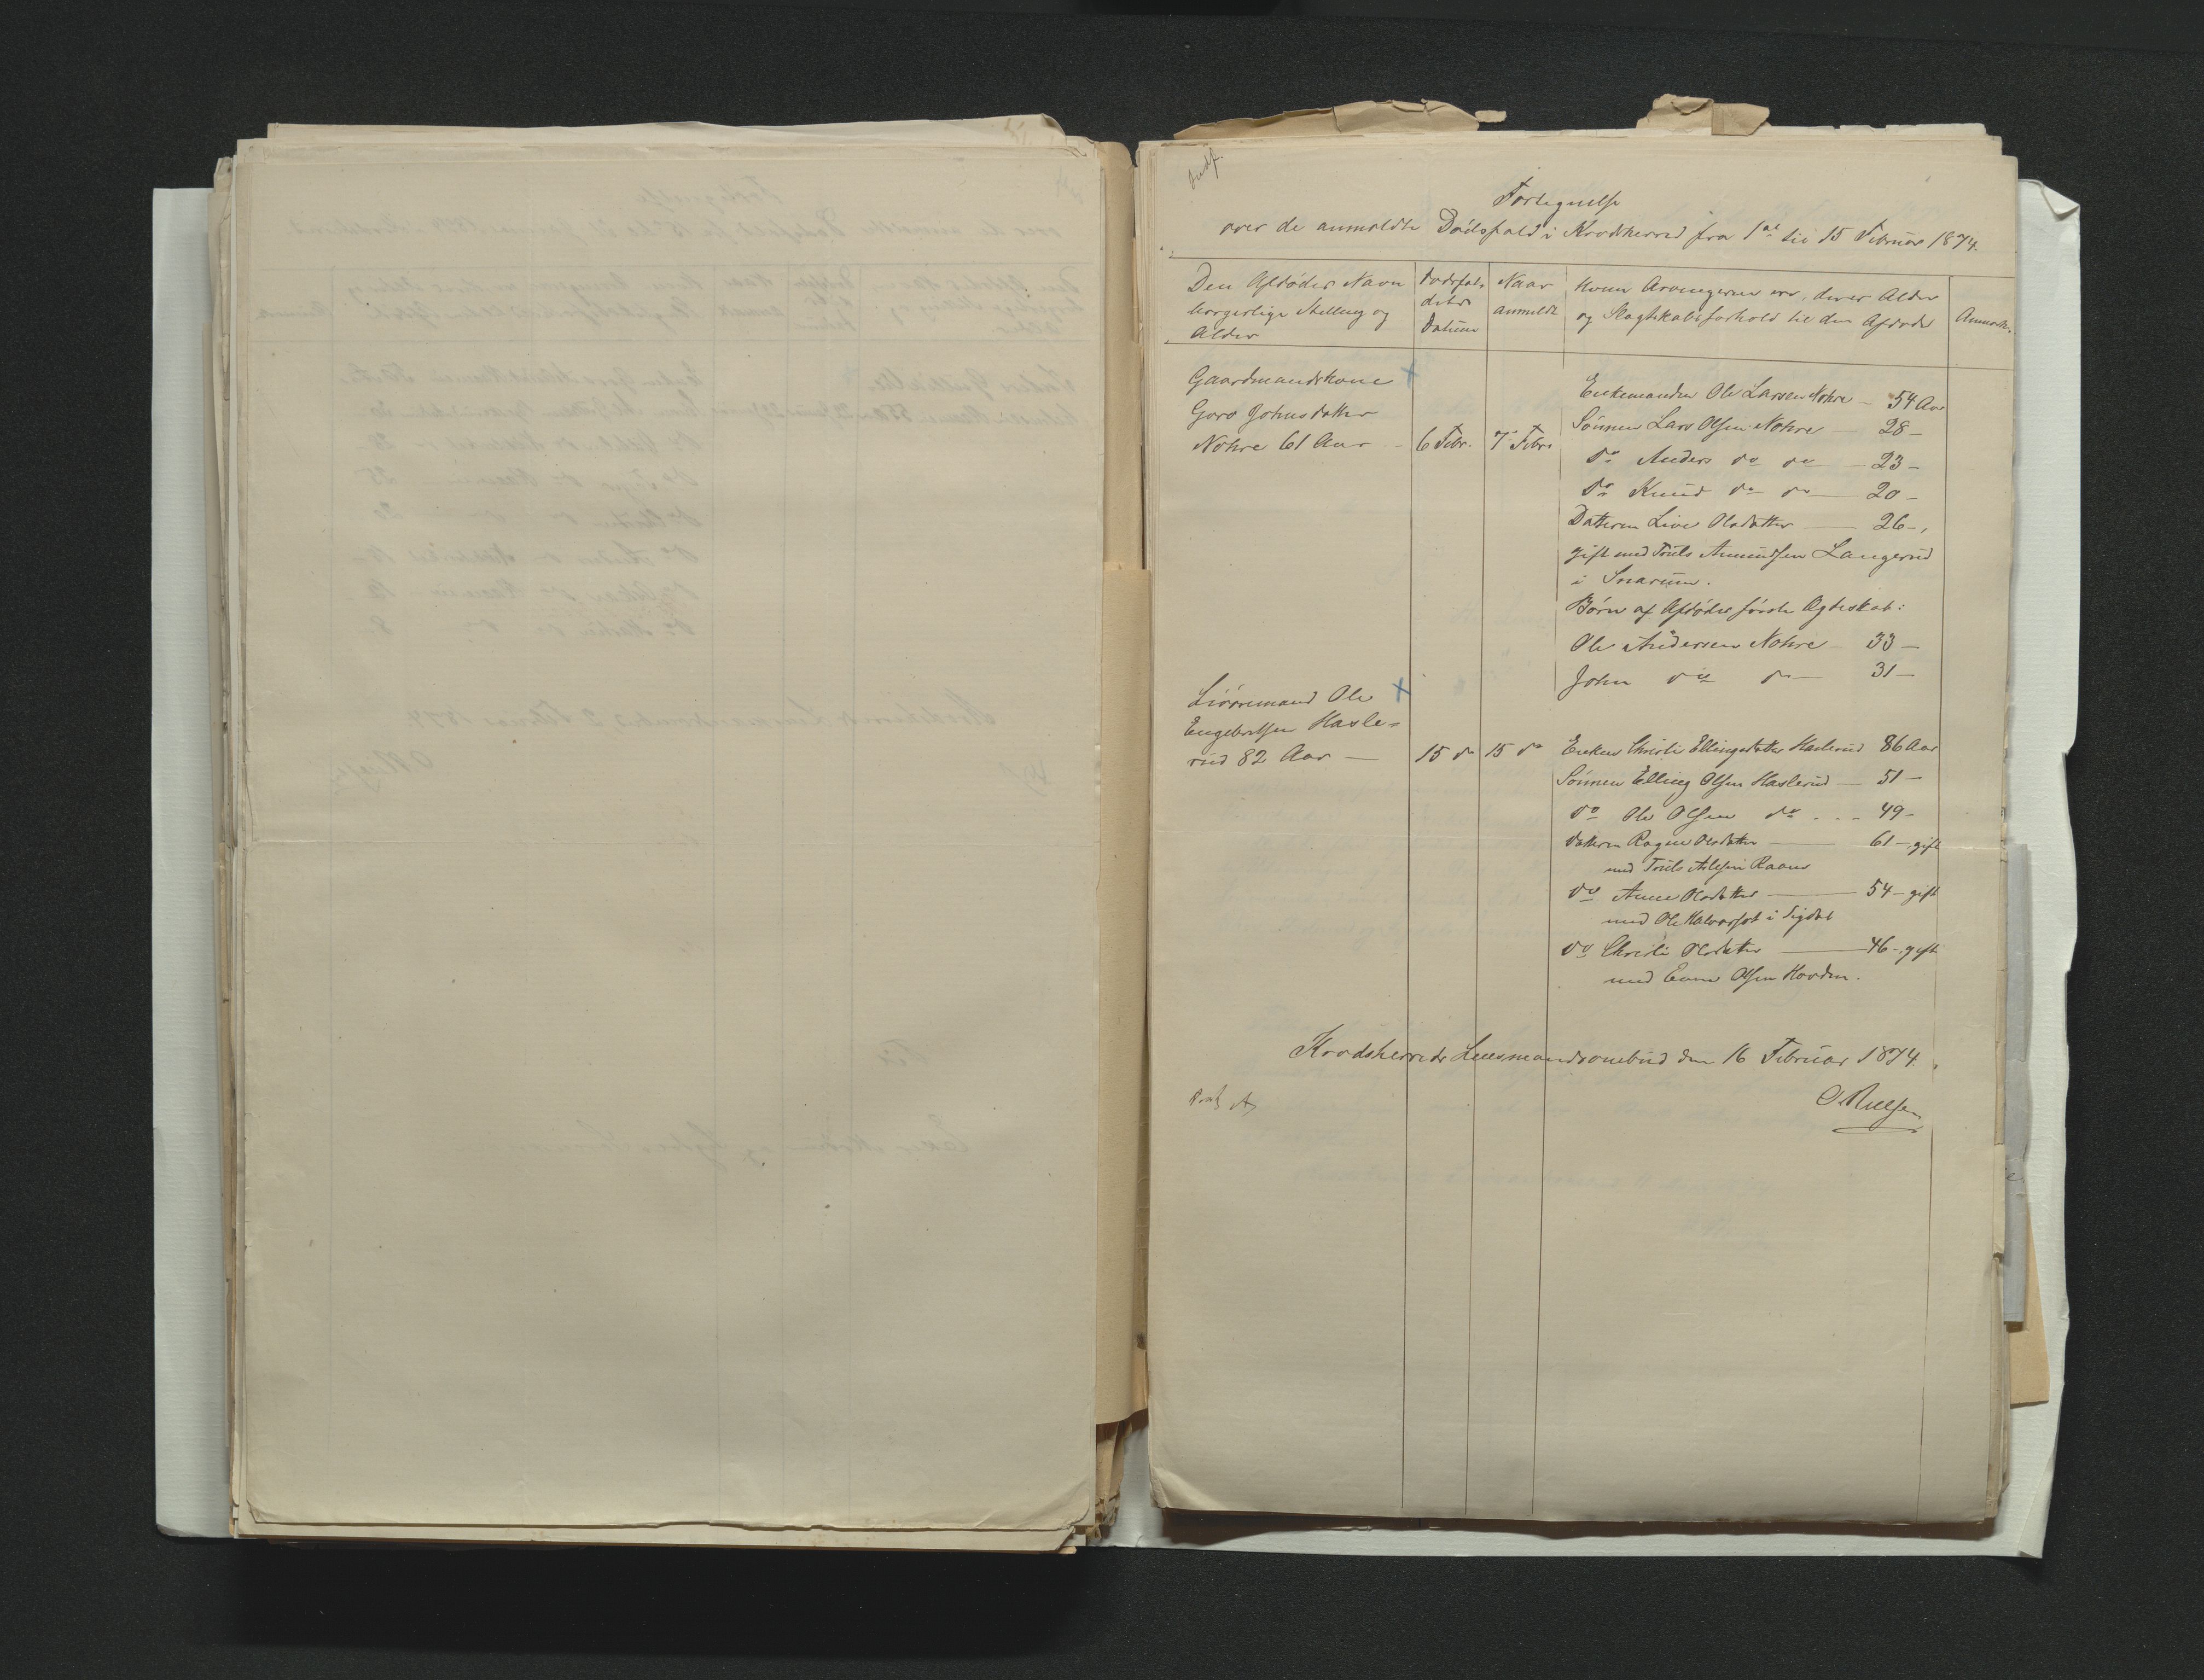 Fortegnelse
over de anmeldte Dødsfald i Krodsherred fra 1ste til 15 Februar 1874.
Den Afdødes Navn
borgerlige Stilling og
Alder
Dødsfal-
dets
Datum
Naar
anmeldt
Hvem Arvingerne ere, deres Alder
og Slagtskabsforhold til den Afdøde
Anmærk.
Gaardmandskone
Goro Johnsdatter
Nohre 61 Aar
6 Febr.
7 Febr.
Enkemanden Ole Larsen Nohre - 54 Aar
Sønnen Lars Olsen Nohre — 28 -
do Anders do do — 23 -
do Knud do do — 20 -
Datteren Live Olsdatter — 26 -,
gift med Truls Amundsen Langerud
i Snarum.
Børn af Afdødes første Ægteskab:
Ole Andersen Nohre - 33 -
John do do — 31 -
Ole
Engebretsen Hasle-
rud 82 Aar —
15 do
15 do
Enken Christi Ellingsdatter Haslerud 86 Aar
Sønnen Elling Olsen Haslerud — 51 -
do Ole Olsen do - - - 49 -
Datteren Ragne Olsdatter — 61 - gift
med Truls Raaen
do Anne Olsdatter — 54 - gift
med Ole i Sigdal
do Christi Olsdatter — 46 - gift
med Even Olsen Hovden.
Krodsherreds Lensmandsombud den 16 Februar 1874.
O Nielsen